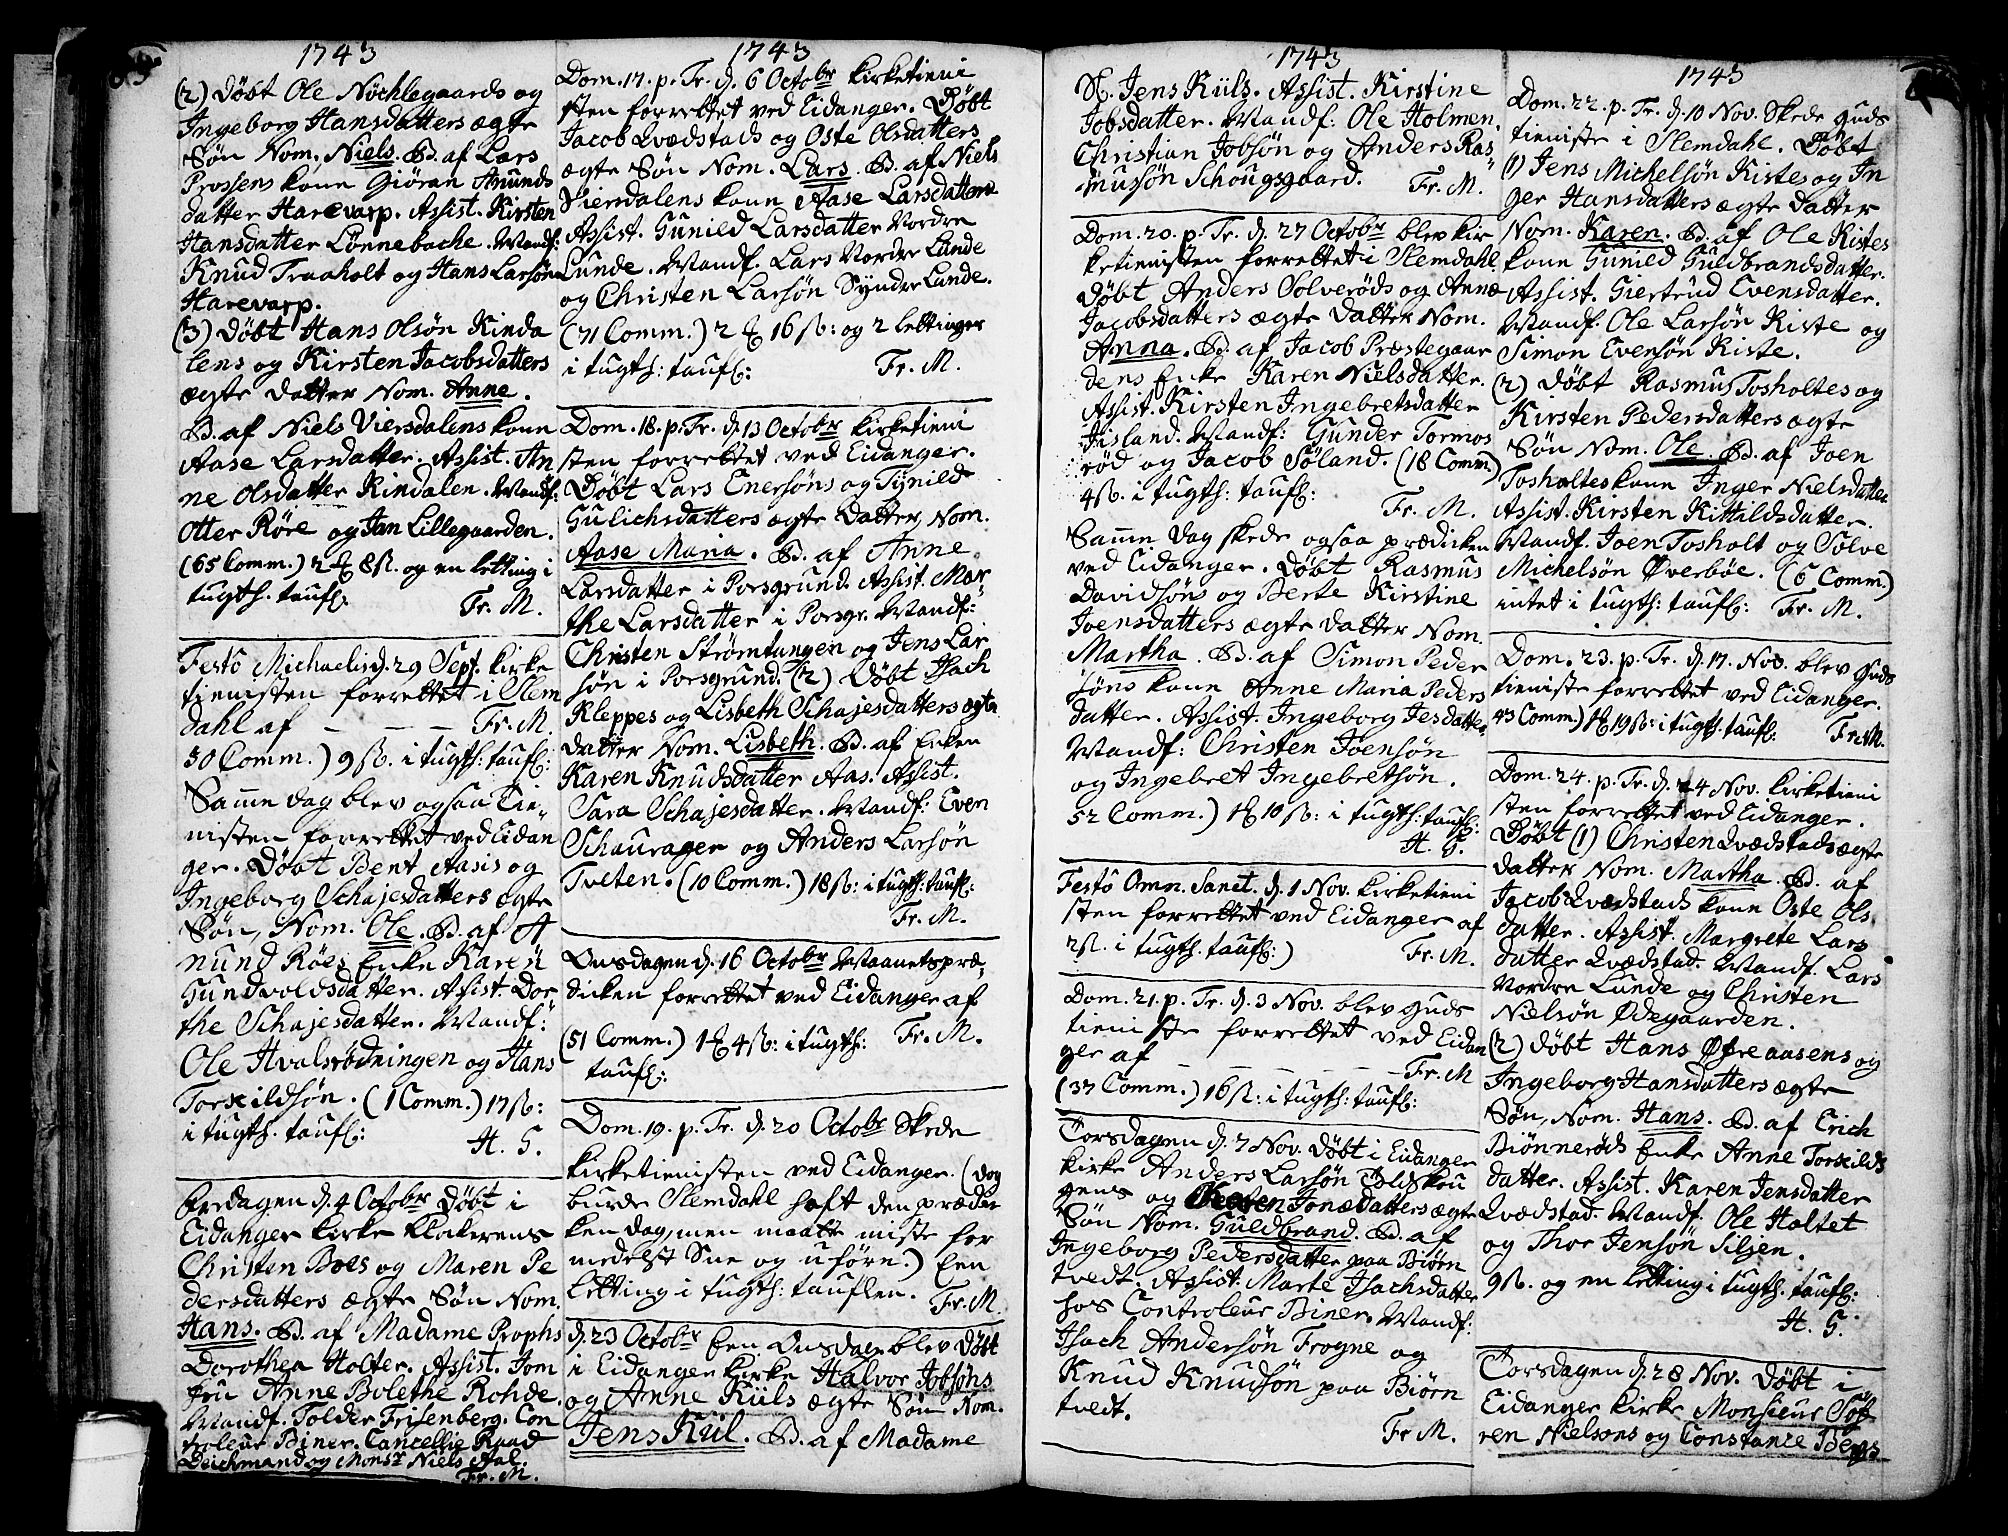 1743
(2) Døbt Ole Nøchlegaards og
Ingeborg Hansdatters ægte
Søn Nom. Niels. B. af Lars
Prossens kone Giøran Anunds
datter Harevarp. Assist. Kirsten
Hansdatter Lønnebache. Mandf:
Knud Traaholt og Hans Larsøn
Harevarp.
(3) Døbt Hans Olsøn Kinda
lens og Kirsten Jacobsdatters
ægte Datter Nom. Anne.
B. af Niels Viersdalens kone
Aase Larsdatter. Assist. An
ne Olsdatter Kindalen. Mandf:
Otter Røre og Jan Lillegaarden.
(65 Comm.) 2 8ß. og en letting i
tugth. taufl:
Fr. M.
Festô Michaelis d. 29 Sept. kirke
tienisten forrettet i Slem
dahl af — — — Fr. M.
30 Comm.) 9ß. i tugth: taufl:
Samme dag blev ogsaa Tie
nisten forrettet ved Eidan
ger. Døbt Bent Aasis og
Ingeborg Schajesdatters ægte
Søn, Nom. Ole. B. af A
nund Røes Enke Karen
Gundvoldsdatter. Assist. Dor
the Schajesdatter. Mandf:
Ole Hvalsrødningen og Hans
Torkildsøn. (1 Comm.) 17ß:
i tugth. taufl:
H. G.
Fredagen d. 4 Octobr Døbt i
Eidanger kirke klokerens
Christen Boes og Maren Pe
dersdatters ægte Søn Nom.
Hans. B. af Madame Prophs
Dorothea Holter. Assist. Jom
fru Anne Bolethe Rohde.
Mandf. Tolder Frisenberg. Con
troleur Biner. Cancellie Raad
Deichmand og Monsr Niels Aal.
Fr. M.
1743
Dom. 17. p. Tr. d. 6 Octobr kirketieni
sten forrettet ved Eidanger. Døbt
Jacob Qvædstads og Oste Olsdatters
ægte Søn Nom. Lars. B. af Niels
Vierdalens kone Aase Larsdatter
Assist. Gunild Larsdatter Nordre
Lunde. Mandf. Lars Nordre Lunde
og Christen Larsøn Syndre Lunde.
(71 Comm.) 2 16ß: og 2 lettinger
i tugth: taufl:
Fr. M.
Dom. 18. p. Tr. d. 13 Octobr kirketieni
sten forrettet ved Eidanger.
Døbt Lars Enersøns og Tynild
Gulichsdatters ægte Datter, Nom.
Aase Maria. B. af Anne
Larsdatter i Porsgrund. Assist. Mar
the Larsdatter i Porsgr. Mandf:
Christen Strømtangen og Jens Lar
søn i Porsgrund. (2) Døbt Isach
Kleppes og Lisbeth Schajesdatters ægte
datter Nom. Lisbeth. B. af Enken
Karen Knudsdatter Aas. Assist.
Sara Schajesdatter. Mandf: Even
Schaurager og Anders Larsøn
Tveten. (10 Comm.) 18ß: i tugth: taufl:
Fr. M.
Onsdagen d. 16 Octobr Maanetspræ
diken forrettet ved Eidanger af
(51 Comm.) 1 4ß: i tugth: Fr. M.
taufl:
Dom. 19. p. Tr. d. 20 Octobr Skede
kirketienisten ved Eidanger. (Dog
burde Slemdahl haft den prædi
ken dag, men maatte miste for
medelst Sne og uføre.) Een
letting i tugth: tauflen.
Fr. M.
d. 23 Octobr Een Onsdag blev Døbt
i Eidanger kirke Halvor Jobsøns
og Anne Kiils ægte Søn Nom.
Jens Kiil. B. af Madame
1743
Sl. Jens Kiils. Assist. Kirstine
Jobsdatter. Mandf: Ole Holmen,
Christian Jobsøn og Anders Ras
mussøn Schougsgaard. Fr. M.
Dom. 20. p. Tr. d. 27 Octobr blev kir
ketienisten forrettet i Slemdahl
Døbt Anders Solverøds og Anne
Jacobsdatters ægte Datter Nom.
Anna. B. af Jacob Præstegaar
dens Enke Karen Nielsdatter.
Assist. Kirsten Ingebretsdatter
Jisland. Mandf: Gunder Tormos
rød og Jacob Søland. (18 Comm)
4ß. i tugth: taufl:
Fr. M.
Samme dag skede ogsaa prædiken
ved Eidanger. Døbt Rasmus
Davidsøns og Berte Kirstine
Joensdatters ægte datter Nom.
Martha. B. af Simon Peder
søns kone Anne Maria Peders
datter. Assist. Ingeborg Jesdatter
Mandf: Christen Joensøn
og Ingebret Ingebretsøn.
52 Comm.) 1 10ß: i tugth: taufl:
H. G.
Festô Omn. Sanct. d. 1 Nov. kirketieni
sten forrettet ved Eidanger af
2ß. i tugth. taufl:)
Fr. M.
Dom. 21. p. Tr. d. 3 Nov. blev guds
tieniste forrettet ved Eidan
ger af — — — — Fr. M
(37 Comm.) 16ß: i tugth: taufl:
Torsdagen d. 7 Nov. Døbt i Eidanger
kirke Anders Larsøn Tolskou
gens og Jonædatters ægte
Søn Nom. Guldbrand. B. af
Ingeborg Pedersdatter paa Biørn
tvedt. Assist. Marte Isachsdatter
hos Controleur Biner. Mandf:
Isach Andersøn Frogne og
Knud Knudsøn paa Biørn
tvedt.
Fr M.
1743
Dom. 22. p. Tr. d. 10 Nov. Skede guds
tieniste i Slemdahl. Døbt
(1) Jens Michelsøn Kistes og In
ger Hansdatters ægte Datter
Nom. Karen. B. af Ole Kistes
kone Gunild Guldbrandsdatter.
Assist. Giertrud Evensdatter.
Mandf: Ole Larsøn Kiste og
Simon Evensøn Kiste.
(2) Døbt Rasmus Tosholtes og
Kirsten Pedersdatters ægte
Søn Nom. Ole. B. af Joen
Tosholtes kone Inger Nielsdatter
Assist. Kirsten Kittaldsdatter.
Mandf. Joen Tosholt og Solve
Michelsøn Øverbøe. (6 Comm.)
intet i tugth: taufl: Fr. M.
Dom. 23. p. Tr. d. 17. Nov. blev guds
tieniste forrettet ved Eidanger.
43 Comm.) 1 19ß: i tugth: taufl: Fr. M.
Dom. 24. p. Tr. d. 24 Nov. kirketieni
sten forrettet ved Eidanger.
Døbt (1) Christen Qvædstads ægte
datter Nom. Martha. B. af
Jacob Qvædstads kone Oste Ols
datter. Assist. Margrete Lars
datter Qvædstad. Mandf. Lars
Nordre Lunde og Christen
Nielsøn Ødegaarden.
(2) Døbt Hans Øfre aasens og
Ingeborg Hansdatters ægte
Søn, Nom. Hans. B. af Erich
Biønnerøds Enke Anne Torkilds
datter. Assist. Karen Jensdatter
Qvædstad. Mandf: Ole Holtet
og Thor Jensøn Siljen.
9ß. og en letting i tugth. taufl:
H. G.
Torsdagen d. 28 Nov. Døbt i
Eidanger kirke Monsieur Søf
ren Nielsons og Constance Bergs